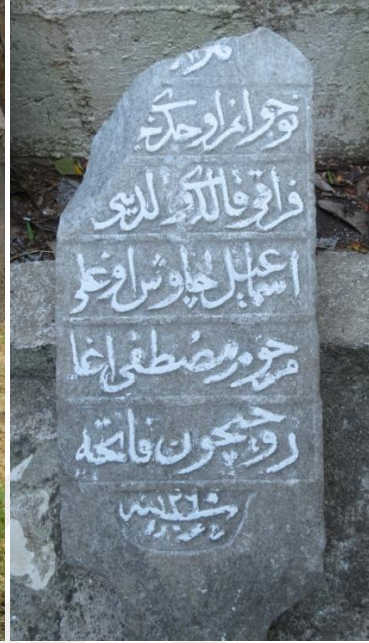 نوجوانم اوچدی
فراقی قالدی والدینی
اسماعیل چاوش اوغلی
مرحوم مصطفی اغا
روحیچون فاتحه
سنه